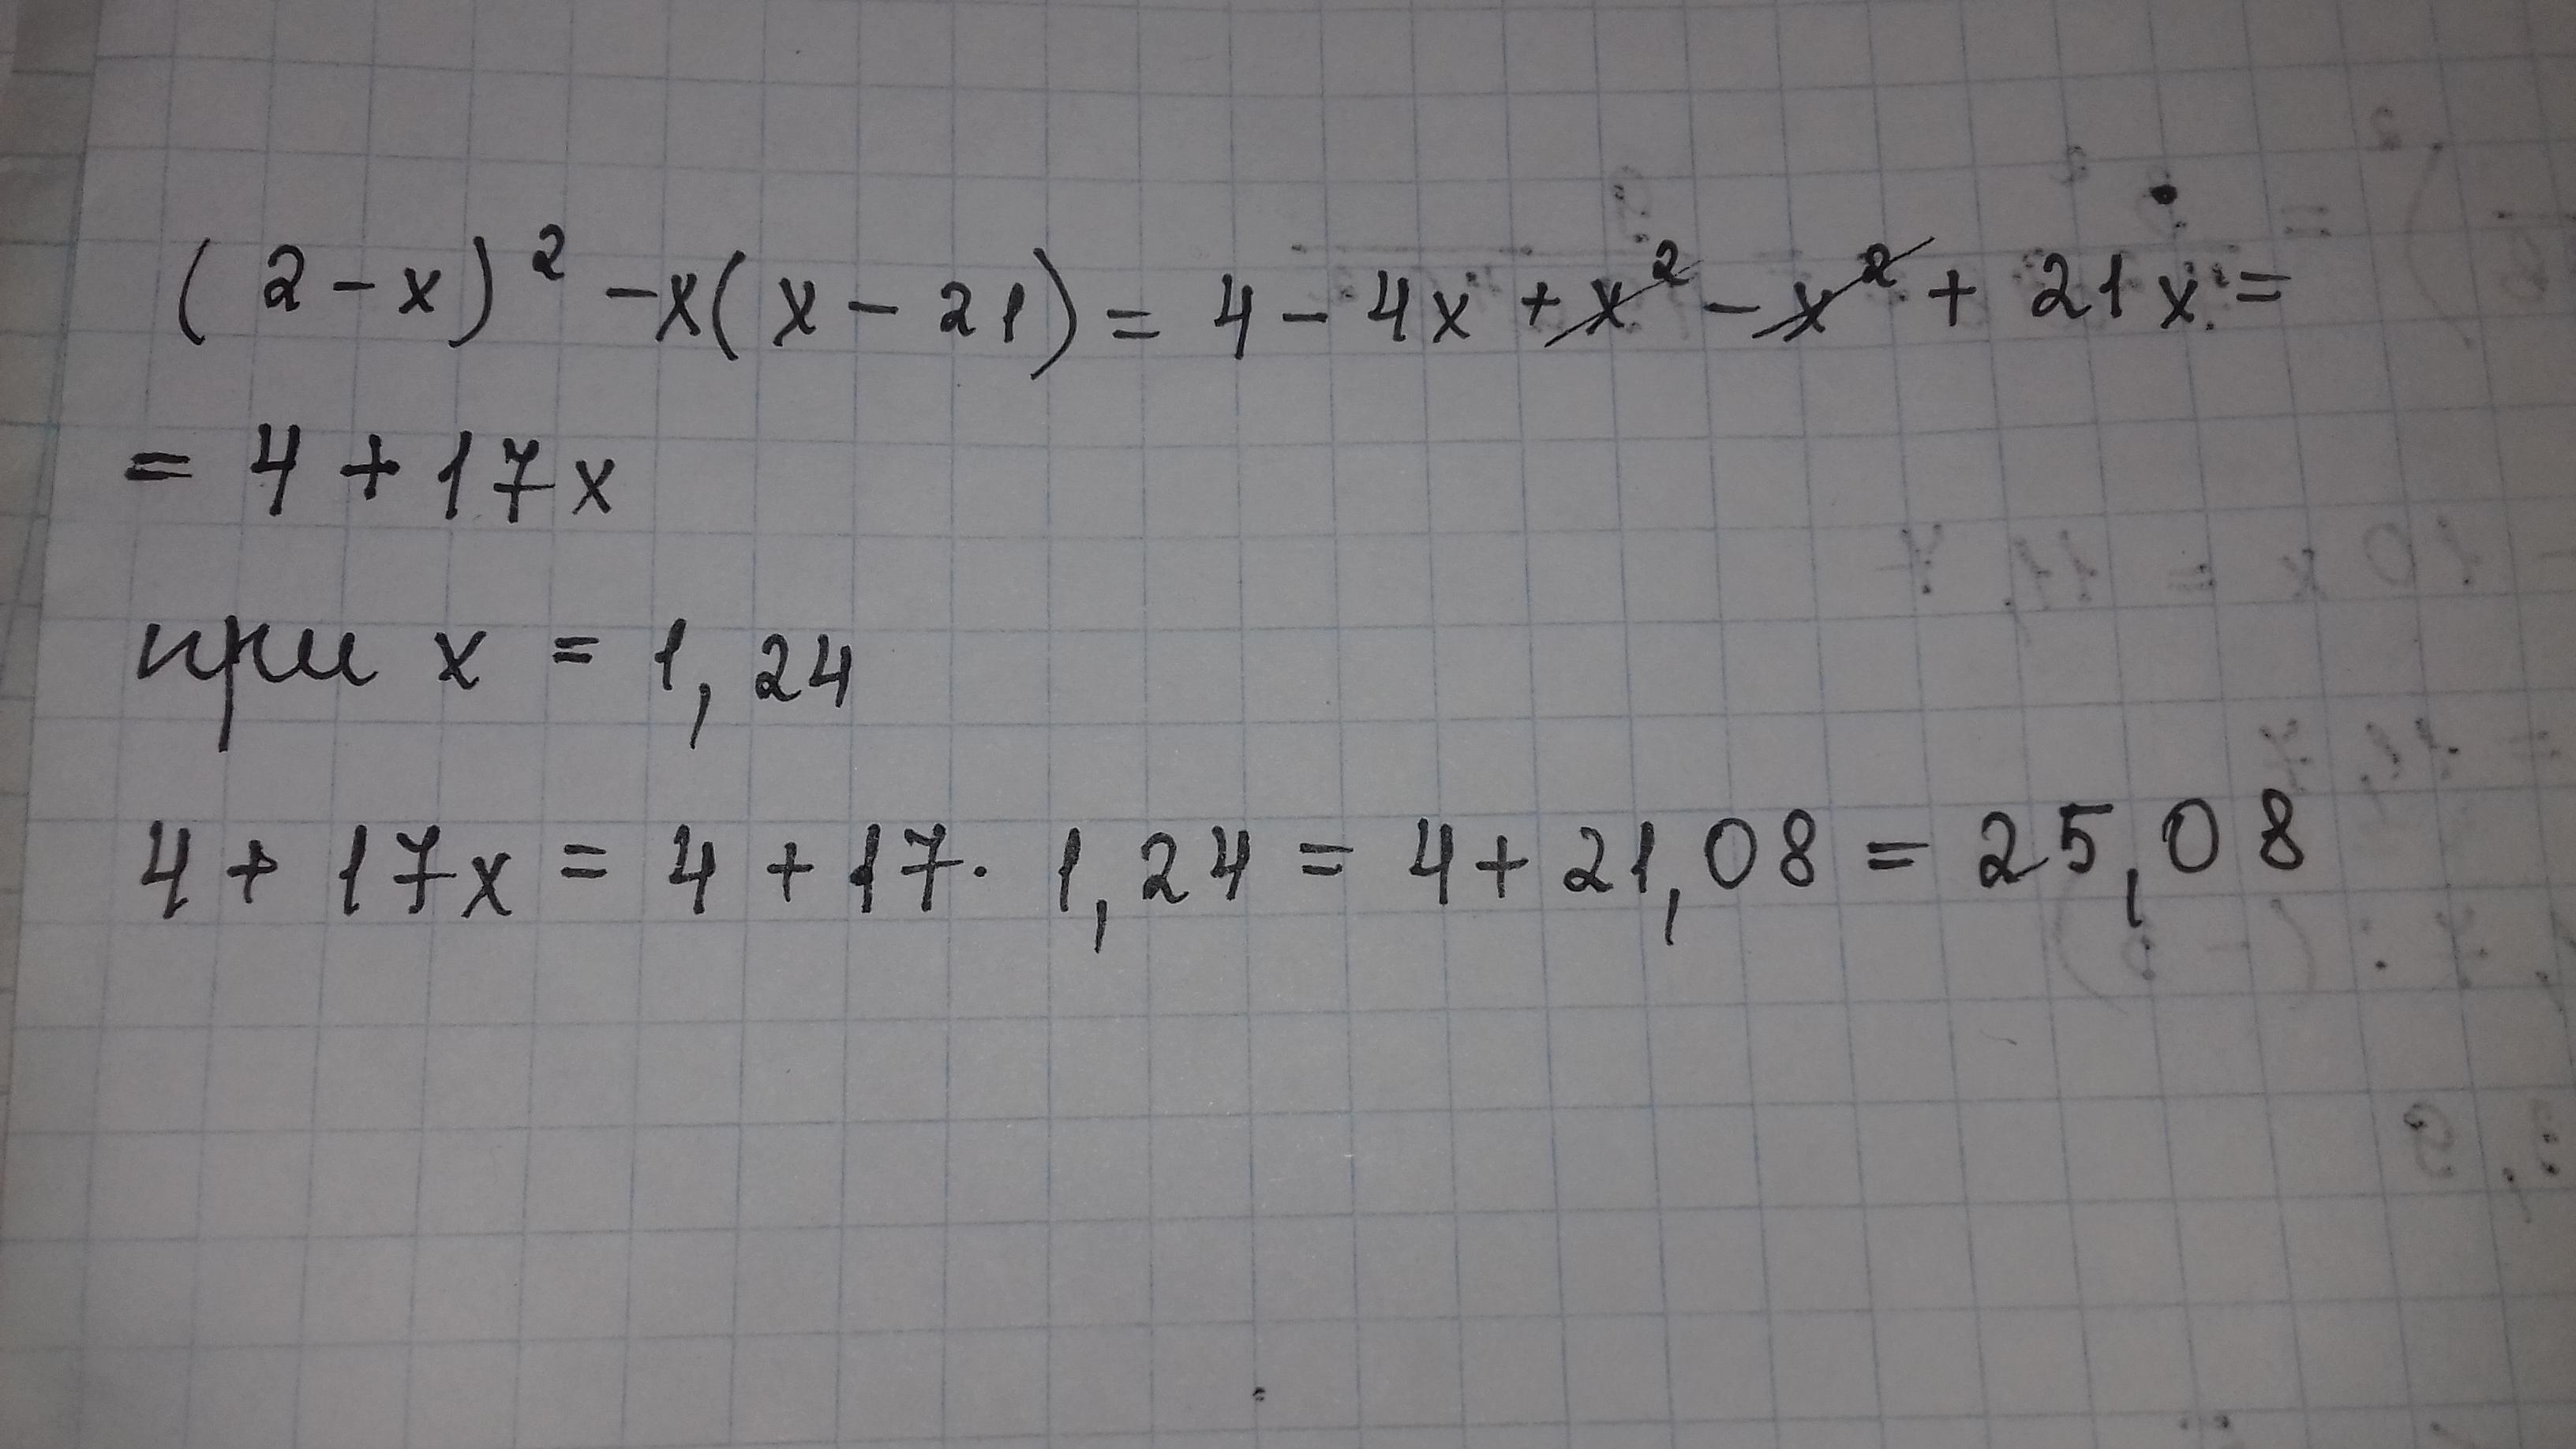 (2-x)² -x(x-21) = 4-4x+x²-x²+21x=
= 4+17x
при x = 1,24
4+17x = 4+17· 1,24 = 4+21,08 = 25,08